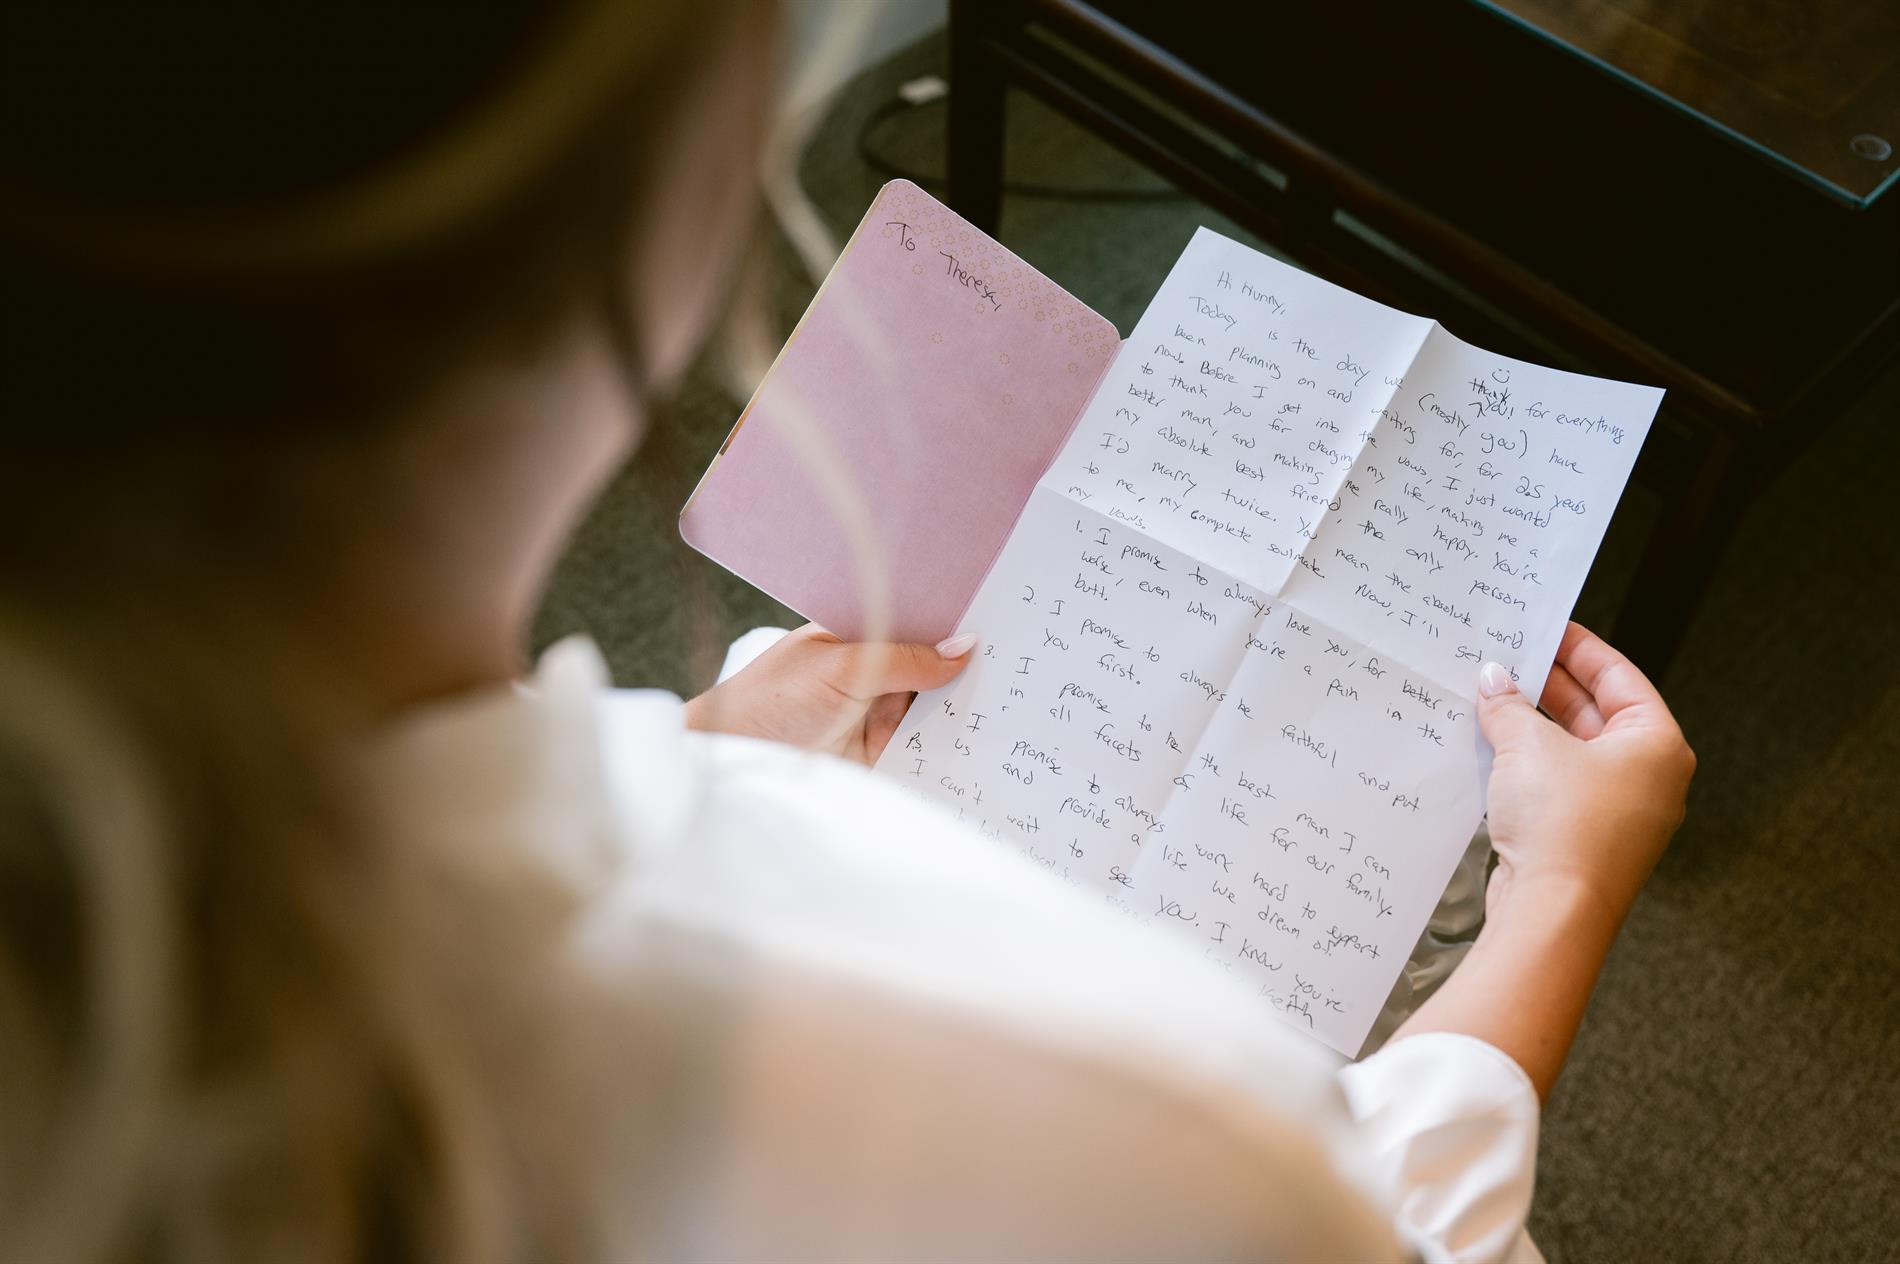 To Theresa,
Hi Hunny,
thank you! for everything
Today is the day we (mostly you) have
been planning on and waiting for, for 2.5 years
now. Before I get into the vows, I just wanted
to thank you for changing my life, making me a
better man, and making me really happy. You're
my absolute best friend, the only person
I'd marry twice. You mean the absolute world
to me, my complete soulmate. Now, I'll get to
my vows.
1. I promise to always love you, for better or
worse, even when you're a pain in the
butt.
2. I promise to always be faithful and put
you first.
3. I promise to be the best man I can
in all facets of life for our family.
4. I promise to always work hard to support
us and provide a life we dream of.
P.S.
I can't wait to see you. I know you're
look absolutely
Love, Keith